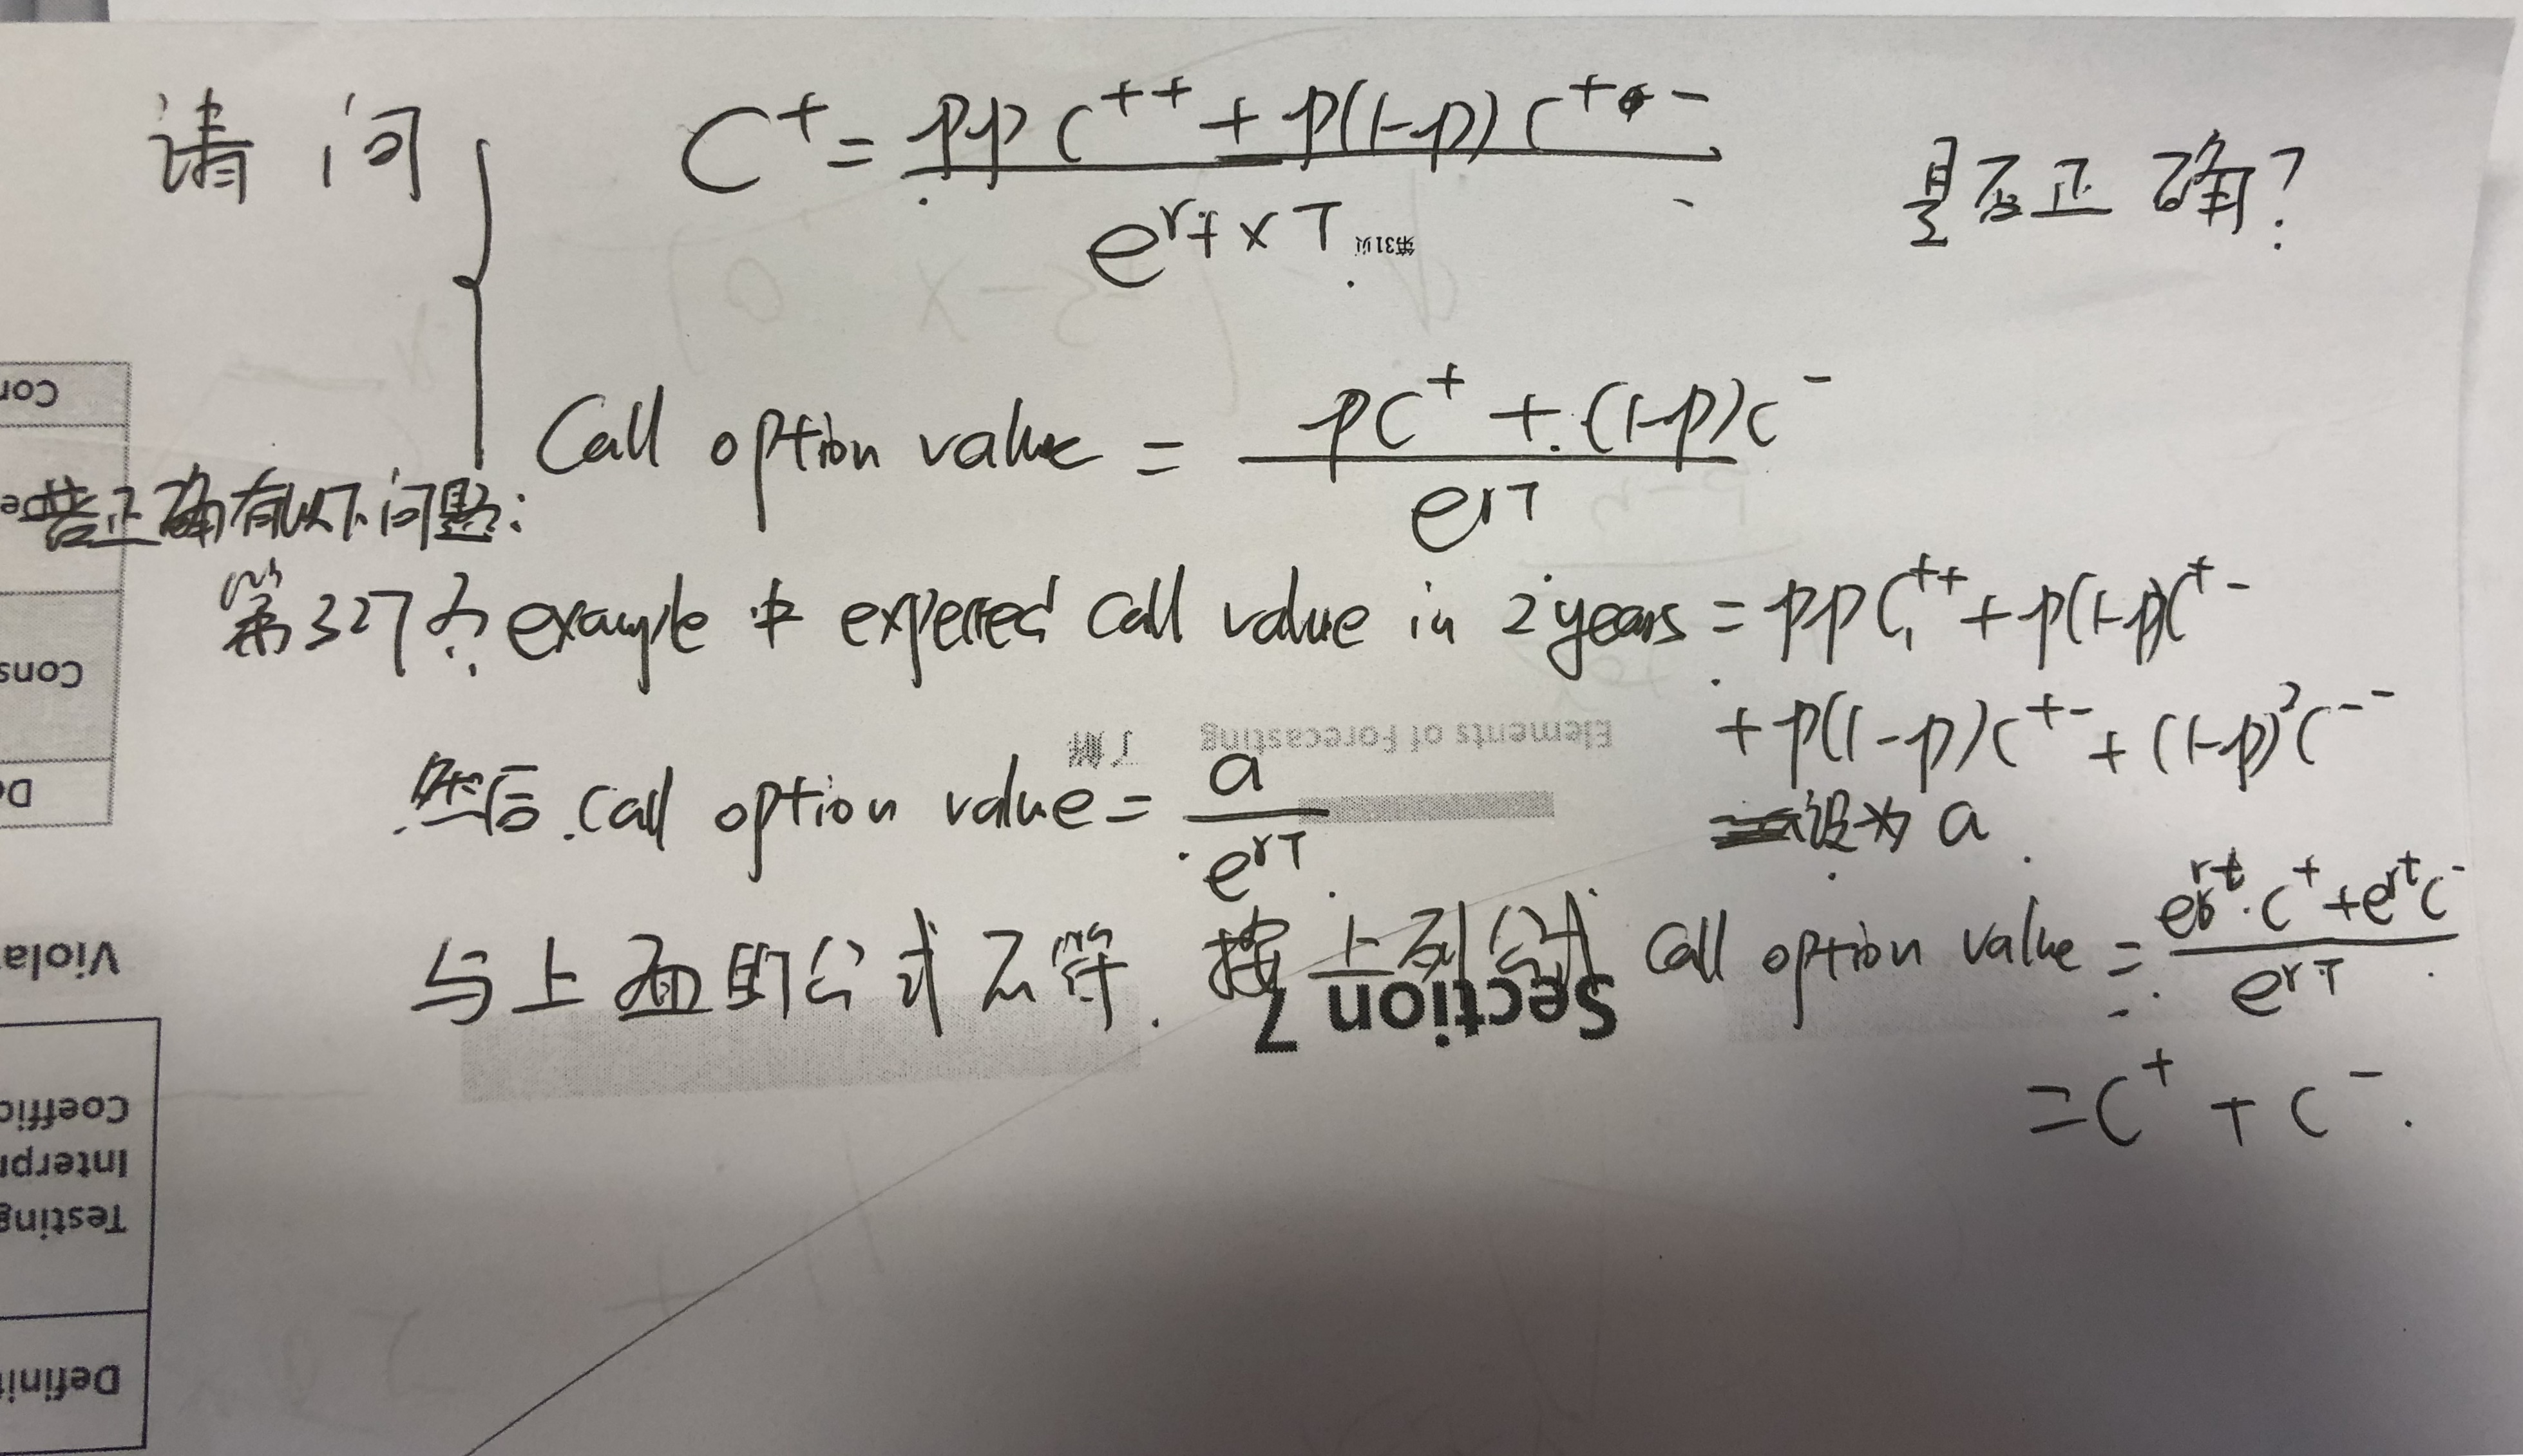 请问 C⁺ = (ppC⁺⁺ + p(1-p)C⁺⁻) / e^(rf×T) 是否正确?
第31页
Call option value = (pC⁺ + (1-p)C⁻) / e^(rT)
若正确有以下问题:
第327页 example 中 expected call value in 2 years = ppC⁺⁺ + p(1-p)C⁺⁻
+ p(1-p)C⁺⁻ + (1-p)²C⁻⁻
设为 a
Elements of Forecasting 了解
然后 call option value = a / e^(rT)
与上面的公式不符. 按上列公式 Call option value = (e^(rt)·C⁺ + e^(rt)C⁻) / e^(rT)
= C⁺ + C⁻.
Section 7
Cor
De
Cons
Viola
Coeffic
Interpr
Testing
Defini